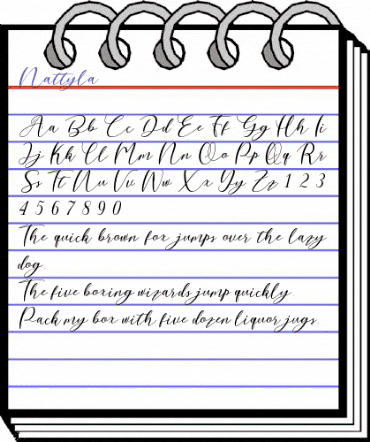 Nattyla
Aa Bb Cc Dd Ee Ff Gg Hh Ii
Jj Kk Ll Mm Nn Oo Pp Qq Rr
Ss Tt Uu Vv Ww Xx Yy Zz 1 2 3
4 5 6 7 8 9 0
The quick brown fox jumps over the lazy
dog
The five boxing wizards jump quickly
Pack my box with five dozen liquor jugs